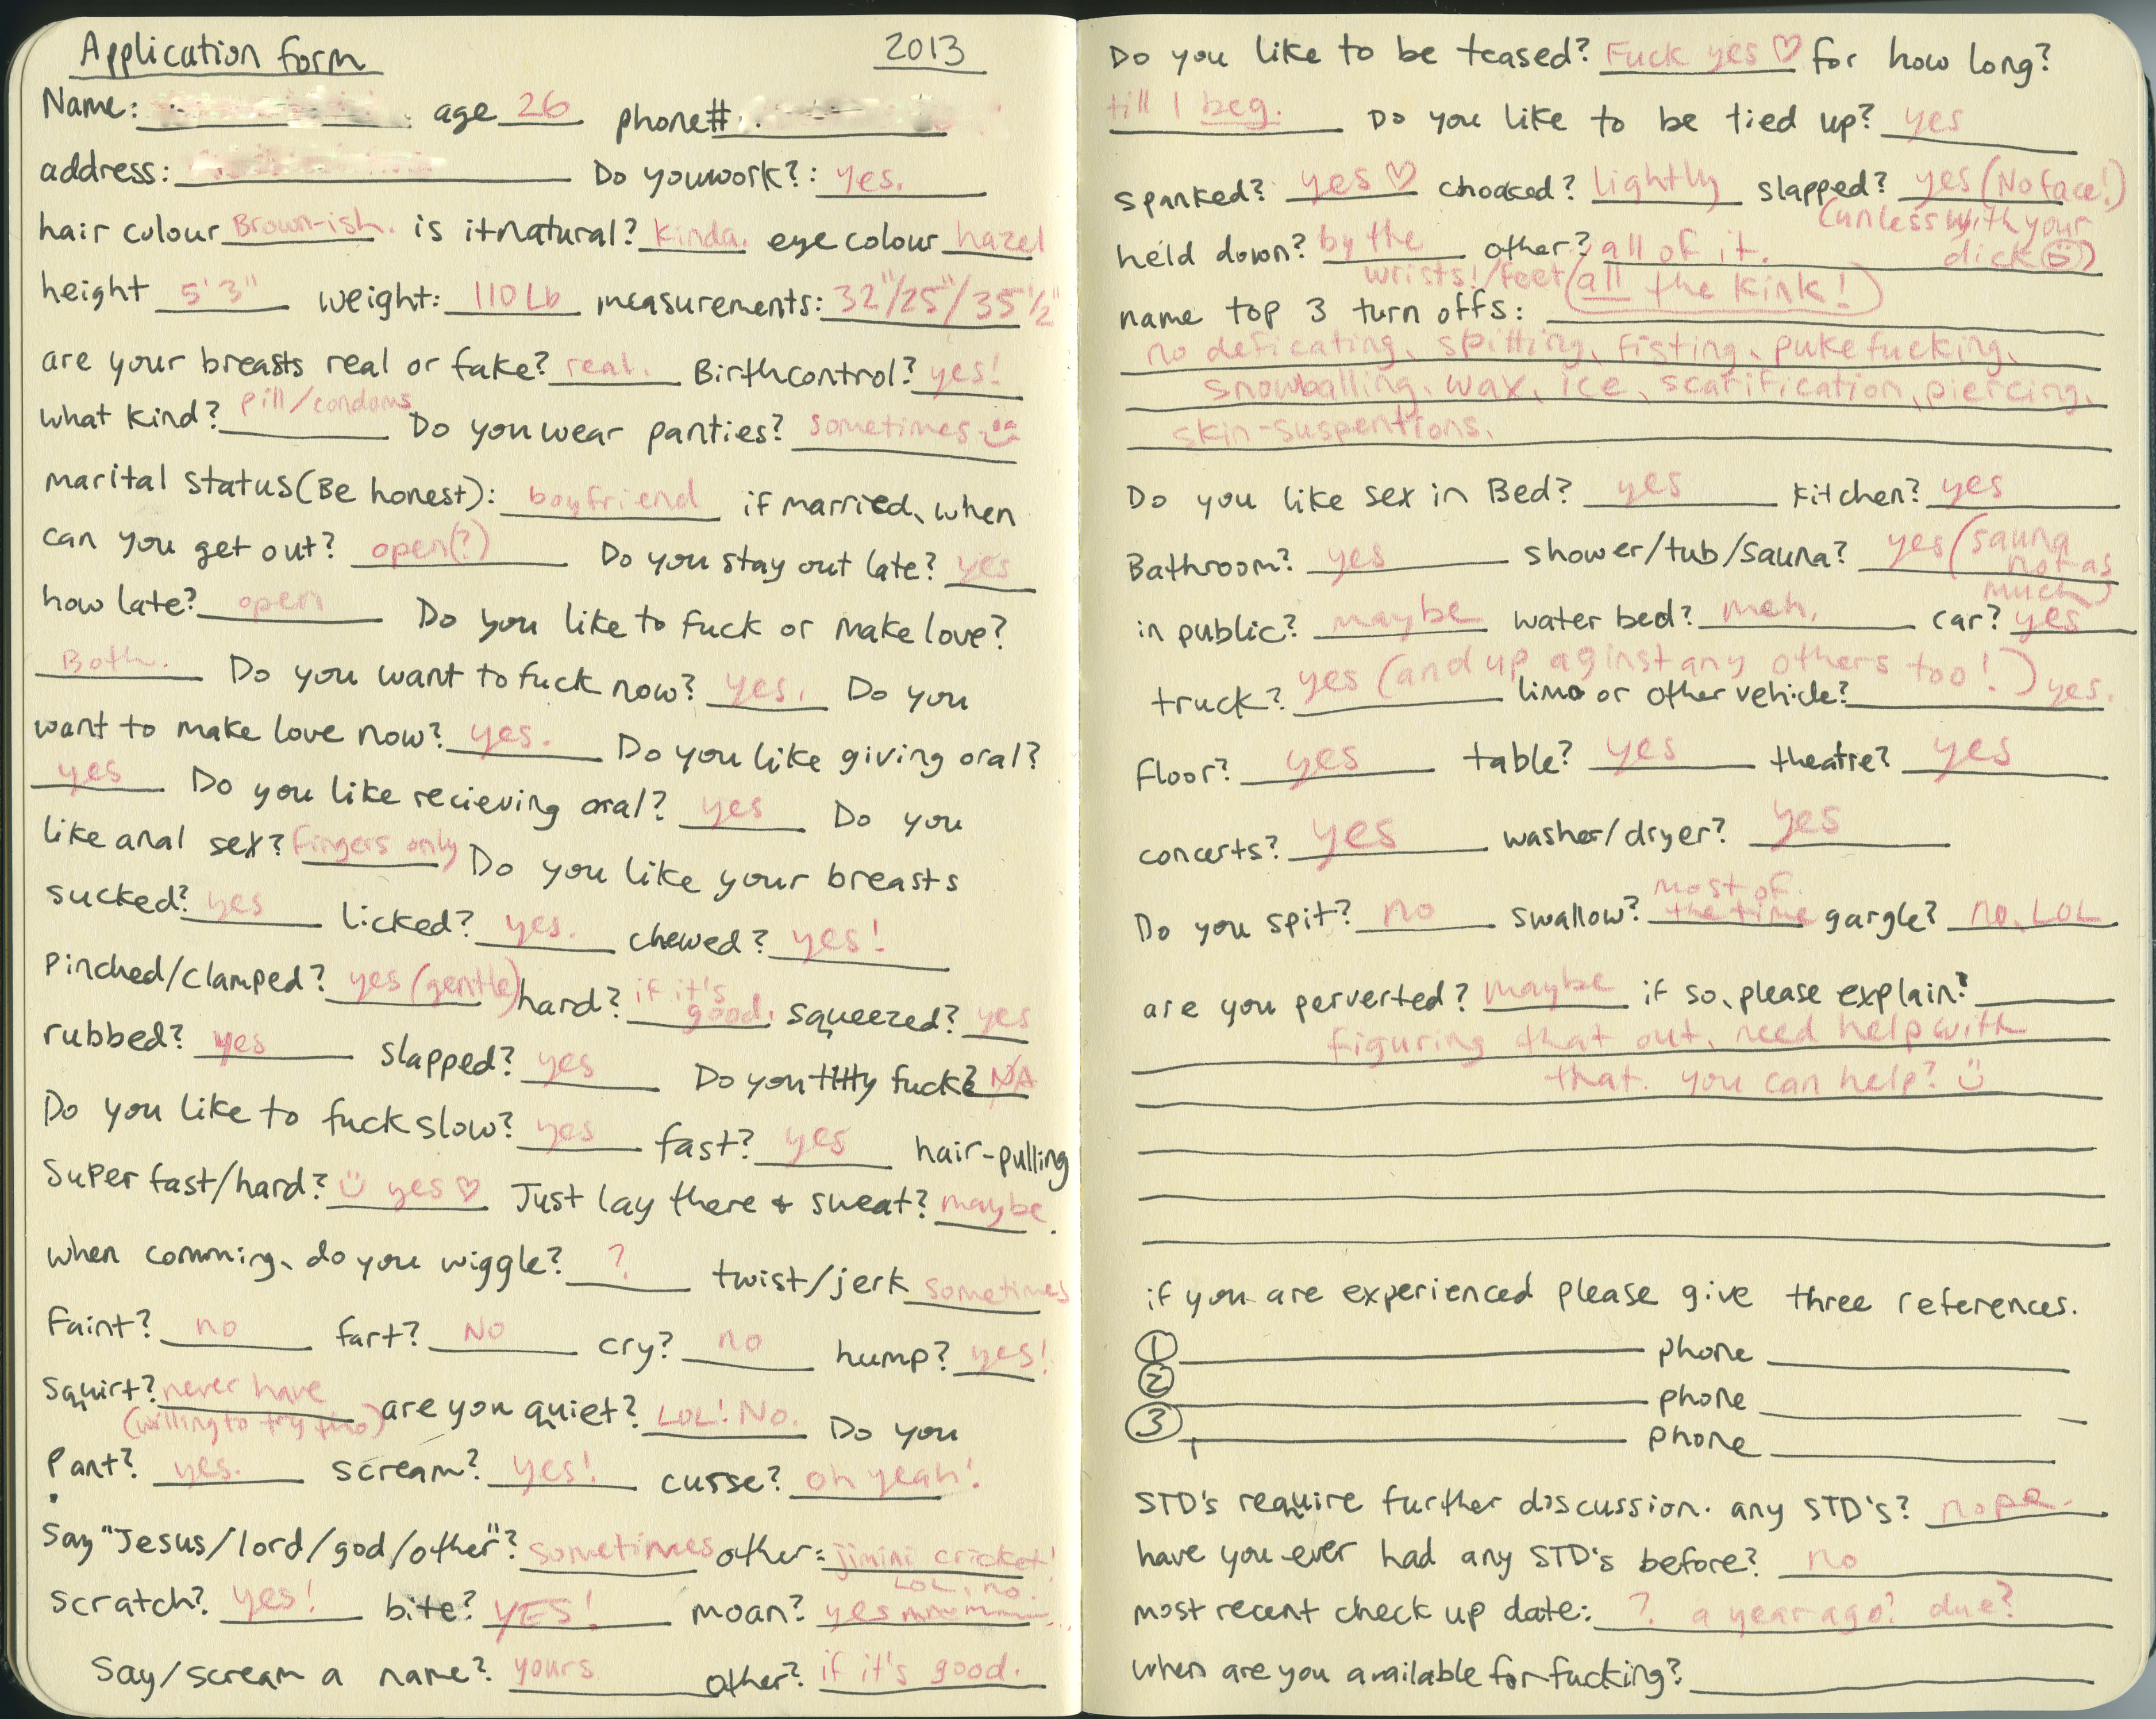 Application form 2013
Name: age 26 phone#
address: Do you work?: yes.
hair colour Brown-ish. is it natural? kinda. eye colour hazel
height 5'3" weight: 110 Lb measurements: 32"/25"/35 1/2"
are your breasts real or fake? real. Birthcontrol? yes!
what kind? pill/condoms Do you wear panties? sometimes
marital status (Be honest): boyfriend if married, when
can you get out? open(?) Do you stay out late? yes
how late? open Do you like to fuck or make love?
Both. Do you want to fuck now? yes. Do you
want to make love now? yes. Do you like giving oral?
yes Do you like recieving oral? yes Do you
like anal sex? fingers only Do you like your breasts
sucked? yes licked? yes. chewed? yes!
Pinched/clamped? yes (gentle) hard? if it's good. squeezed? yes
rubbed? yes slapped? yes Do you titty fuck? NA
Do you like to fuck slow? yes fast? yes hair-pulling
Super fast/hard? yes ♡ Just lay there + sweat? maybe.
when comming, do you wiggle? ? twist/jerk sometimes
Faint? no fart? No cry? no hump? yes!
Squirt? never have (willing to try tho) are you quiet? LOL! No. Do you
Pant? yes. scream? yes! cursse? oh yeah!
Say "Jesus/lord/god/other"? sometimes other: jimini cricket!
LOL, no.
scratch? yes! bite? YES! moan? yes mmmmm...
Say/scream a name? yours other? if it's good.
Do you like to be teased? Fuck yes ♡ for how long?
till I beg. Do you like to be tied up? yes
spanked? yes ♡ choked? lightly slapped? yes (No face!)
(unless with your dick)
held down? by the wrists!/feet other? all of it.
(all the kink!)
name top 3 turn offs:
no deficating, spitting, fisting, puke fucking,
snowballing, wax, ice, scarification, piercing,
skin-suspentions.
Do you like sex in Bed? yes kitchen? yes
Bathroom? yes shower/tub/sauna? yes (sauna not as much)
in public? maybe water bed? meh. car? yes
truck? yes (and up aginst any others too!) limo or other vehicle? yes.
floor? yes table? yes theatre? yes
concerts? yes washer/dryer? yes
Do you spit? no swallow? most of the time gargle? no. LOL
are you perverted? maybe if so, please explain?
figuring that out, need help with
that. you can help?
if you are experienced please give three references.
1 phone
2 phone
3 phone
STD's require further discussion. any STD's? nope.
have you ever had any STD's before? no
most recent check up date: ? a year ago? due?
when are you available for fucking?